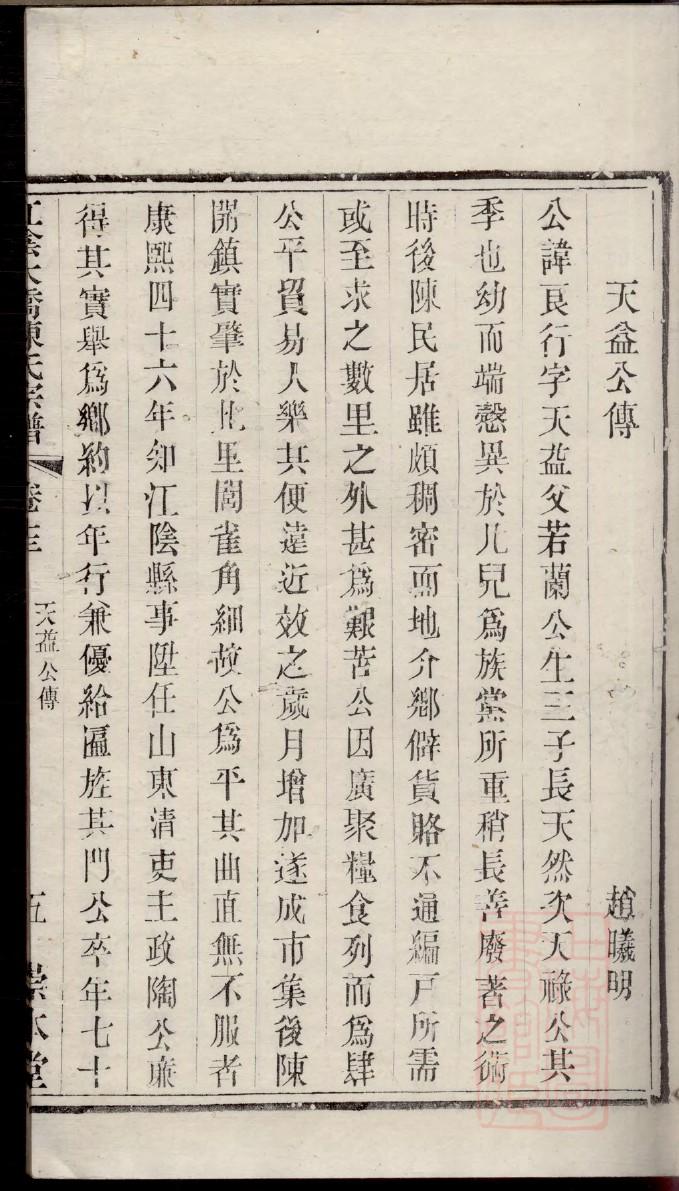 天益公傳
趙曦明
公諱良行字天益父若蘭公生三子長天然次天祿公其
季也幼而端慤異於凡兒爲族黨所重稍長善廢著之術
時後陳民居雖頗稠密而地介鄉僻貨賂不通編戸所需
或至求之數里之外甚爲艱苦公因廣聚糧食列而爲肆
公平貿易人樂其便遠近效之歲月增加遂成市集後陳
開鎮實肇於此里閭雀角細故公爲平其曲直無不服者
康熙四十六年知江陰縣事陞任山東清吏主政陶公廉
得其實舉爲鄉約以年行兼優給匾旌其門公卒年七十
江陰大橋陳氏宗譜 卷 天益公傳 五 崇本堂